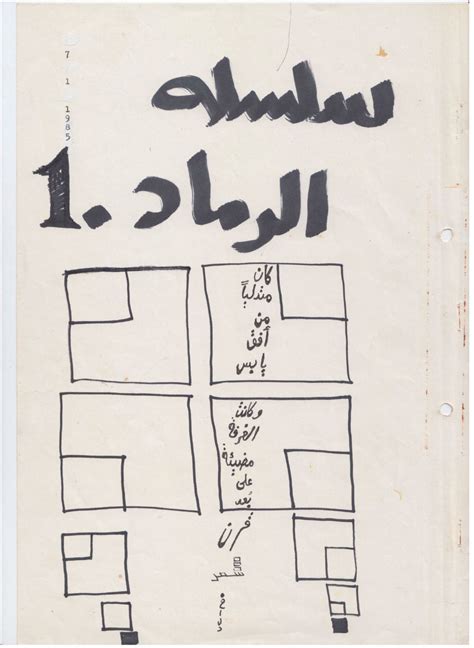 7
1
1985
سلسله
الرماد .1
كان
متدلياً
من
أفق
يابس
وكانت
الغرفة
مضيئة
على
بُعد
قرن
شعر